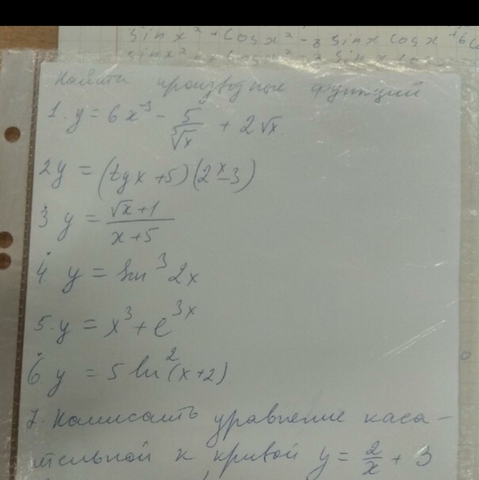 sin x² + cos x² - 3 sin x cos x
Найти производные функций
1. y = 6x³ - 5/⁵√x + 2√x
2 y = (tg x + 5)(2ˣ - 3)
3 y = (√x + 1)/(x + 5)
4. y = ln³ 2x
5. y = x³ + e³ˣ
6. y = 5 ln²(x+2)
7. Написать уравнение каса-
тельной к кривой y = 2/x + 3